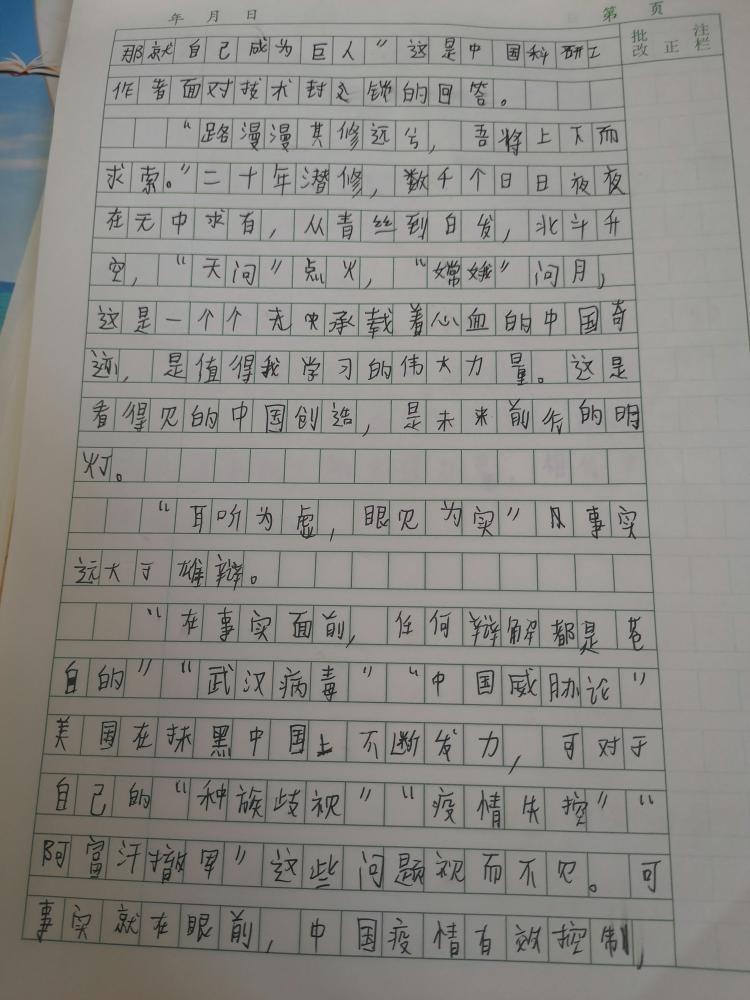 年 月 日
第 页
批改 正 注栏
那就自己成为巨人”这是中国科研工
作者面对技术封之锁的回答。
“路漫漫其修远兮，吾将上下而
求索。”二十年潜修，数千个日日夜夜
在无中求有，从青丝到白发，北斗升
空，“天问”点火，“嫦娥”问月，
这是一个个无央承载着心血的中国奇
迹，是值得我学习的伟大力量。这是
看得见的中国创造，是未来前行的明
灯。
“耳听为虚，眼见为实”事实
远大于雄辩。
“在事实面前，任何辩解都是苍
白的”“武汉病毒”“中国威胁论”
美国在抹黑中国上不断发力，可对于
自己的“种族歧视”“疫情失控”“
阿富汗撤军”这些问题视而不见。可
事实就在眼前，中国疫情有效控制，